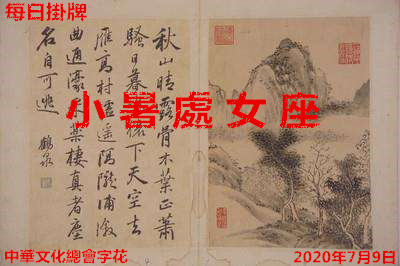 每日掛牌
小暑處女座
秋山晴露骨木葉正蕭
騷日暮猿下天空去
雁高村墟遙隔隴浦漵
曲通濠采藥棲真者塵
名自可逃
中華文化總會字花
2020年7月9日